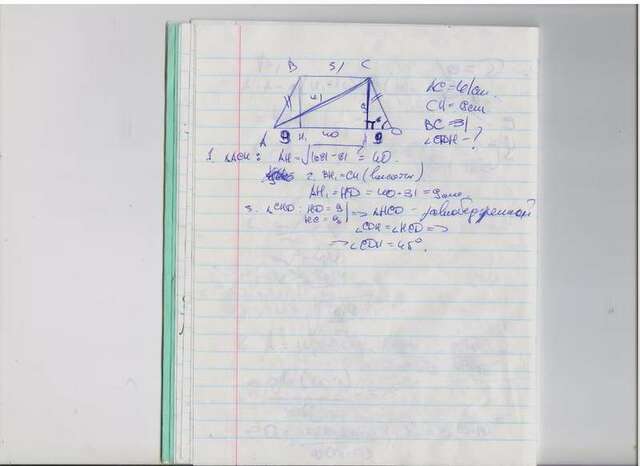 B 31 C
41
9 9
A H₁ 40 H D
AC=41см.
CH=9см
BC=31
∠CDH-?
1. △ACH: AH=√1681-81=40.
2. BH₁=CH (высоты)
AH₁=HD=40-31=9см.
3. ∠CHD: HD=9
HC=9 ⇒ △HCD-равнобедренный
∠CDH=∠HCD ⇒
⇒ ∠CDH=45°.